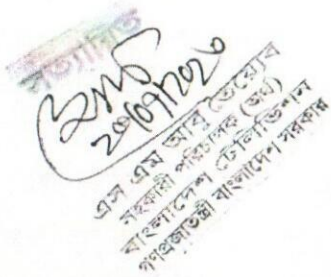 সত্যায়িত
এস এম আবু
সহকারী পরিচালক (অর্থ)
বাংলাদেশ টেলিভিশন
গণপ্রজাতন্ত্রী বাংলাদেশ সরকার